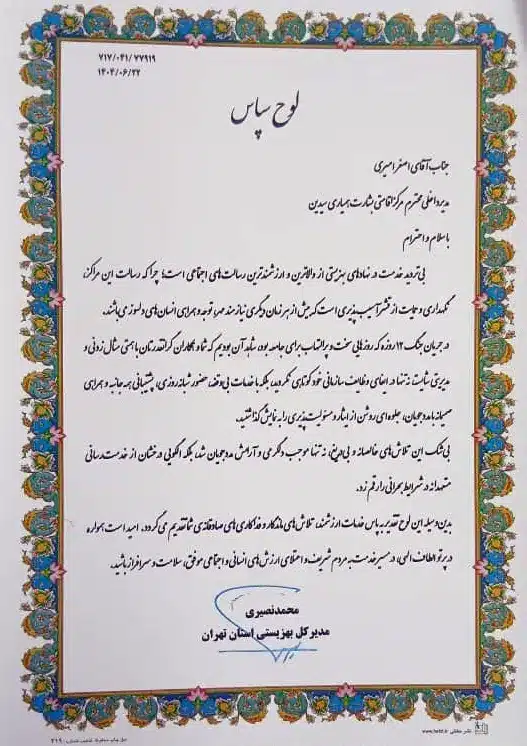 ۷۱۷/۰۴۱/۷۷۹۱۹
۱۴۰۴/۰۶/۲۲
لوح سپاس
جناب آقای اصغر امیری
مدیر داخلی محترم مرکز اقامتی بشارت همیاری سیدین
با سلام و احترام
بی تردید خدمت در نهادهای بهزیستی از والاترین و ارزشمندترین رسالت‌های اجتماعی است؛ چرا که رسالت این مراکز،
نگهداری و حمایت از قشر آسیب‌پذیری است که بیش از هر زمان دیگری نیازمند مهر، توجه و همراهی انسان‌های دلسوز می‌باشند.
در جریان جنگ ۱۲ روزه که روزهایی سخت و پرالتهاب برای جامعه بود، شاهد آن بودیم که شما و همکاران گرانقدرتان با همتی مثال زدنی و
مدیریتی شایسته نه تنها در ایفای وظایف سازمانی خود کوتاهی نکردید، بلکه با خدمات بی‌وقفه، حضور شبانه روزی، پشتیبانی همه جانبه و همراهی
صمیمانه با مددجویان، جلوه‌ای روشن از ایثار و مسئولیت‌پذیری را به نمایش گذاشتید.
بی‌شک این تلاش‌های خالصانه و بی‌دریغ، نه تنها موجب دلگرمی و آرامش مددجویان شد، بلکه الگویی درخشان از خدمت رسانی
متعهدانه در شرایط بحرانی را رقم زد.
بدین وسیله این لوح تقدیر به پاس خدمات ارزشمند، تلاش‌های ماندگار و فداکاری‌های صادقانه‌ی شما تقدیم می‌گردد. امید است همواره
در پرتو الطاف الهی، در مسیر خدمت به مردم شریف و اعتلای ارزش‌های انسانی و اجتماعی موفق، سلامت و سرافراز باشید.
محمدنصیری
مدیرکل بهزیستی استان تهران
www.hafif.ir